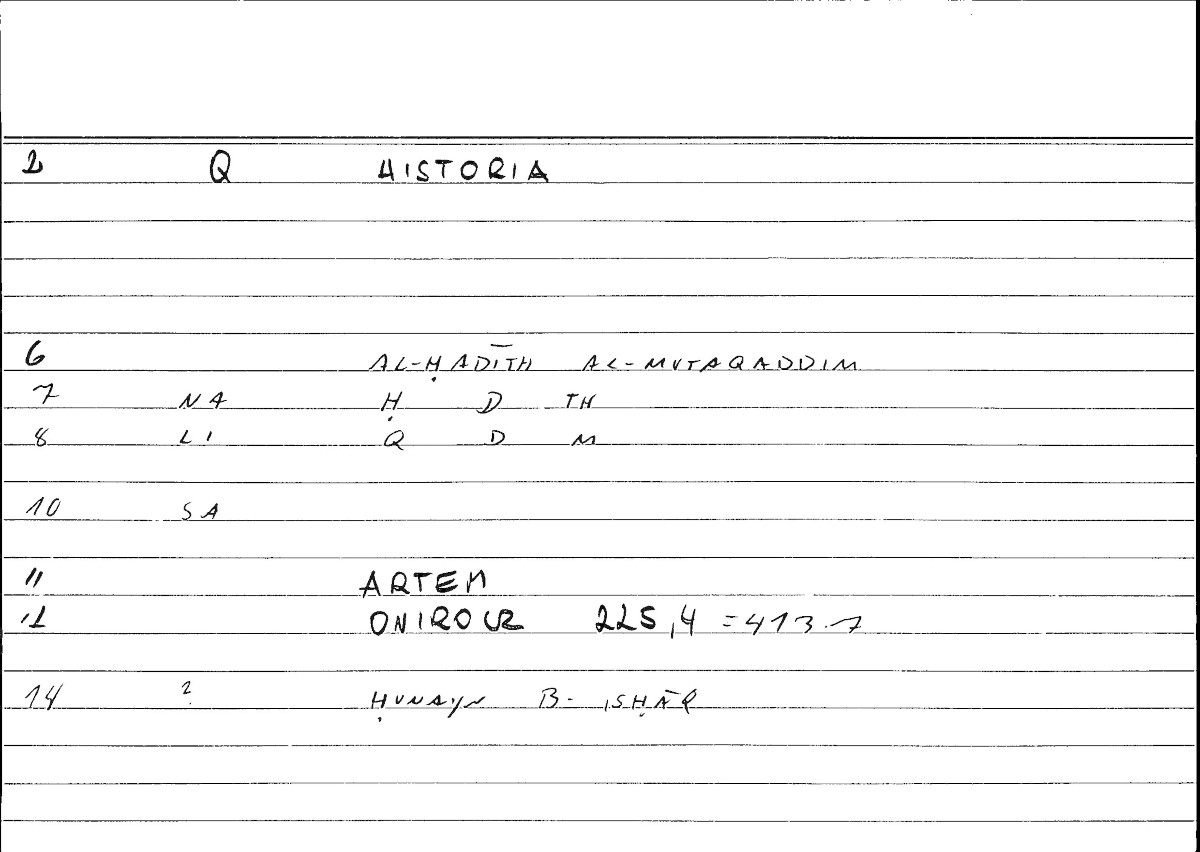 2 Q HISTORIA
6 AL-ḤADĪTH AL-MUTAQADDIM
7 NA Ḥ D TH
8 LI Q D M
10 SA
11 ARTEM
12 ONIROCR 225,4 =413.7
14 ? ḤUNAYN B- ISḤĀQ